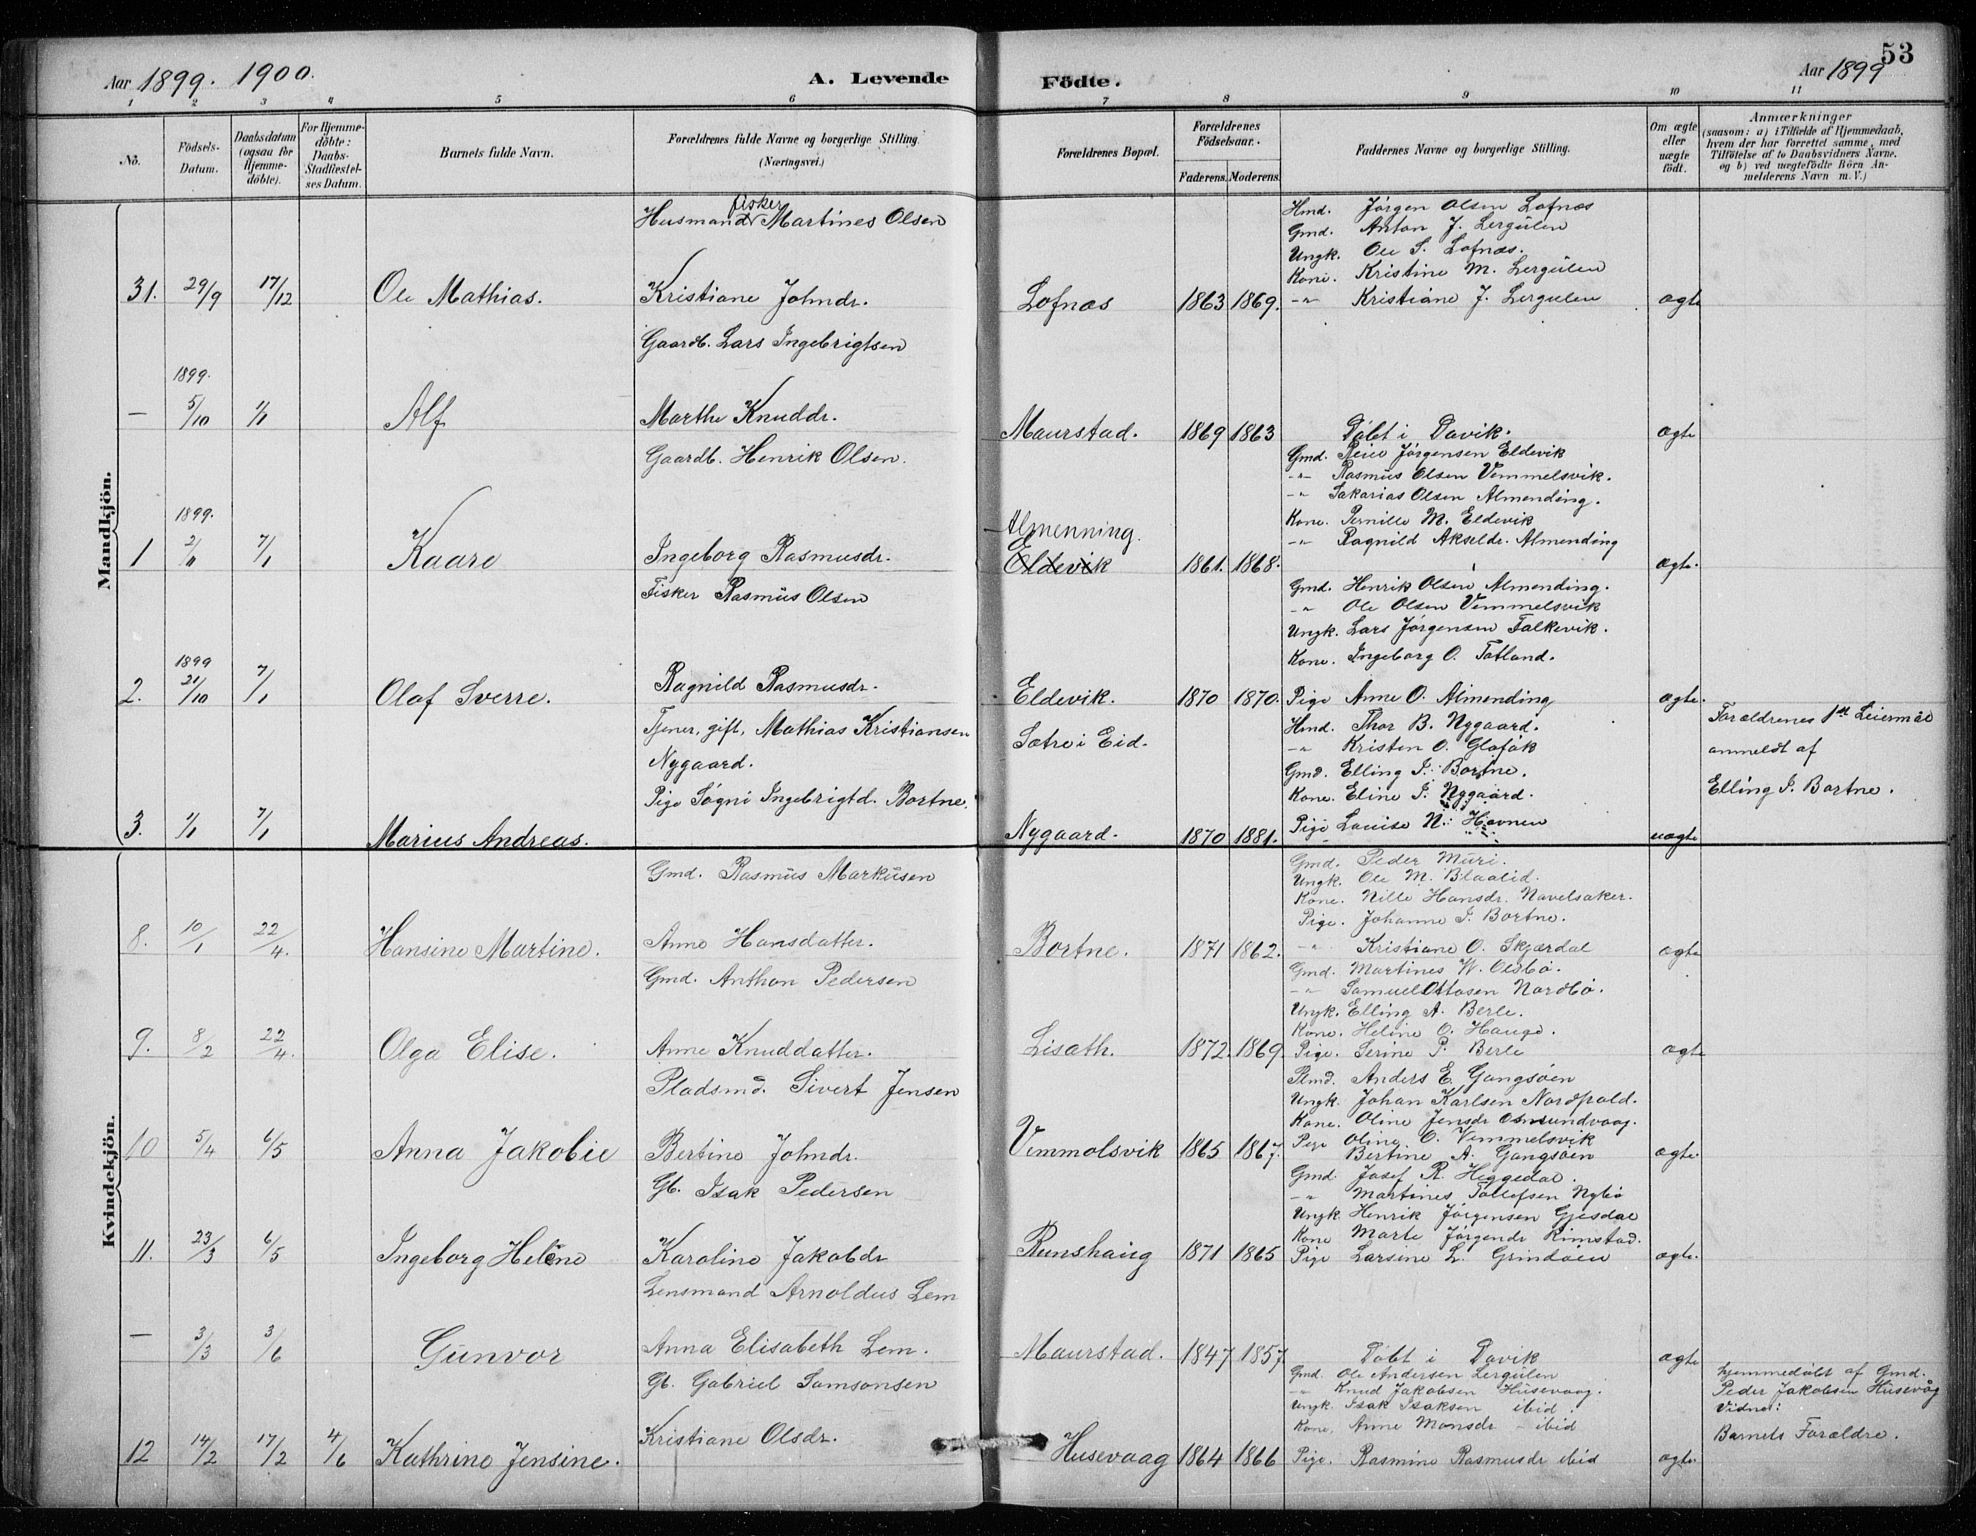 53
Aar 1899. 1900.
A. Levende
Födte.
Aar 1899
1 2 3 4 5 6 7 8 9 10 11
No.
Födsels-
Datum.
Daabsdatum
(ogsaa for
Hjemme-
döbte).
For Hjemme-
döbte:
Daabs-
Stadfæstel-
ses Datum.
Barnets fulde Navn.
Forældrenes fulde Navne og borgerlige Stilling.
(Næringsvei.)
Forældrenes Bopæl.
Forældrenes
Födselsaar.
Faderens. Moderens.
Faddernes Navne og borgerlige Stilling.
Om ægte
eller
uægte
födt.
Anmærkninger
(saasom: a) i Tilfælde af Hjemmedaab,
hvem der har forrettet samme, med
Tilföielse af to Daabsvidners Navne.
og b) ved uægtefödte Börn An-
melderens Navn m. V.)
Mandkjön.
fisker
Husmand Martines Olsen
Hmd. Jörgen Olsen Lofnæs
Gmd. Anton J. Lergulen
Ungk. Ole S. Lofnæs.
Kone. Kristine M. Lergulen
31. 29/9 17/12 Ole Mathias. Kristiane Johndr. Lofnæs 1863 1869. -"- Kristiane J. Lergulen ægte
Gaardb. Lars Ingebrigtsen
1899.
— 5/10 1/1 Alf Marthe Knuddr. Maurstad. 1869 1863 Döbt i Davik. ægte
Gaardb. Henrik Olsen.
Gmd. Jörgensen Eldevik
-"- Rasmus Olsen Vemmelsvik.
-"- Sakarias Olsen Almending.
Kone. Pernille M. Eldevik
-"- Ragnild Akseldr. Almending
1899. Almenning.
1 2/11 7/1 Kaare Ingeborg Rasmusdr. Eldevik 1861. 1868. ægte.
Fisker Rasmus Olsen
Gmd. Henrik Olsen Almending.
-"- Ole Olsen Vemmelsvik
Ungk. Lars Jörgensen Falkevik.
Kone. Ingeborg O. Totland.
1899
2. 21/10 7/1 Olaf Sverre. Ragnild Rasmusdr. Eldevik. 1870 1870. Pige Anne O. Almending ægte.
Tjener, gift, Mathias Kristiansen
Nygaard.
Pige Sögni Ingebrigtd. Bortne.
Sætre i Eid.
Hmd. Thor B. Nygaard.
-"- Kristen O. Glofök
Gmd. Elling I. Bortne.
Kone. Eline I. Nygaard.
Forældrenes 1ste Leiermål
anmeldt af
Elling I. Bortne.
3. 1/1 7/1 Marius Andreas. Nygaard. 1870 1881. Pige Louise N. Havnen uægte
Kvindekjön.
Gmd. Rasmus Markusen
Gmd. Peder Muri.
Ungk. Ole M. Blaalid.
Kone. Nille Hansdr. Navelsaker.
Pige. Johanne I. Bortne.
8. 10/1 22/4. Hansine Martine. Anne Hansdatter. Bortne. 1871 1862. -"- Kristiane O. Skjærdal ægte
Gmd. Anthon Pedersen
Gmd. Martines W. Olsbö.
-"- Samuel Ottosen Nordbö.
Ungk. Elling A. Berle.
Kone. Heline O. Hauge.
9. 8/2 22/4. Olga Elise. Anne Knuddatter. Lisæth. 1872. 1869. Pige. Serine P. Berle ægte
Pladsmd. Sivert Jensen
Plmd. Anders E. Gangsöen
Ungk. Johan Karlsen Nordpold.
Kone. Oline Jensdr Osmundvaag.
Pige Oline O. Vemmelsvik
10 5/4 6/5 Anna Jakobie Bertine Johndr. Vemmolsvik 1865 1867. Bertine A. Gangsöen ægte.
Gb. Isak Pedersen
Gmd. Josef R. Heggedal.
-"- Martines Tollefsen Nybö
Ungk. Henrik Jörgensen Gjesdal
Kone Marte Jörgendr Rimstad.
11. 23/3 6/5 Ingeborg Helene Karoline Jakobdr Runshaug 1871 1865 Pige Larsine L. Grindöen ægte.
Lensmand Arnoldus Lem
— 3/3 3/6 Gunvor Anna Elisabeth Lem. Maurstad. 1847 1857. Döbt i Davik ægte
Gb. Gabriel Samsonsen
Gmd. Ole Andersen Lergulen
-"- Knud Jakobsen Husevaag.
Ungk. Isak Isaksen ibid.
Kone. Anne Monsdr - ibid
hjemmedöbt af Gmd.
Peder Jakobsen Husevåg
Vidne:
Barnets Forældre.
12 14/2 17/2 4/6 Kathrine Jensine. Kristiane Olsdr. Husevaag 1864 1866 Pige. Rasmine Rasmusdr ibid ægte.